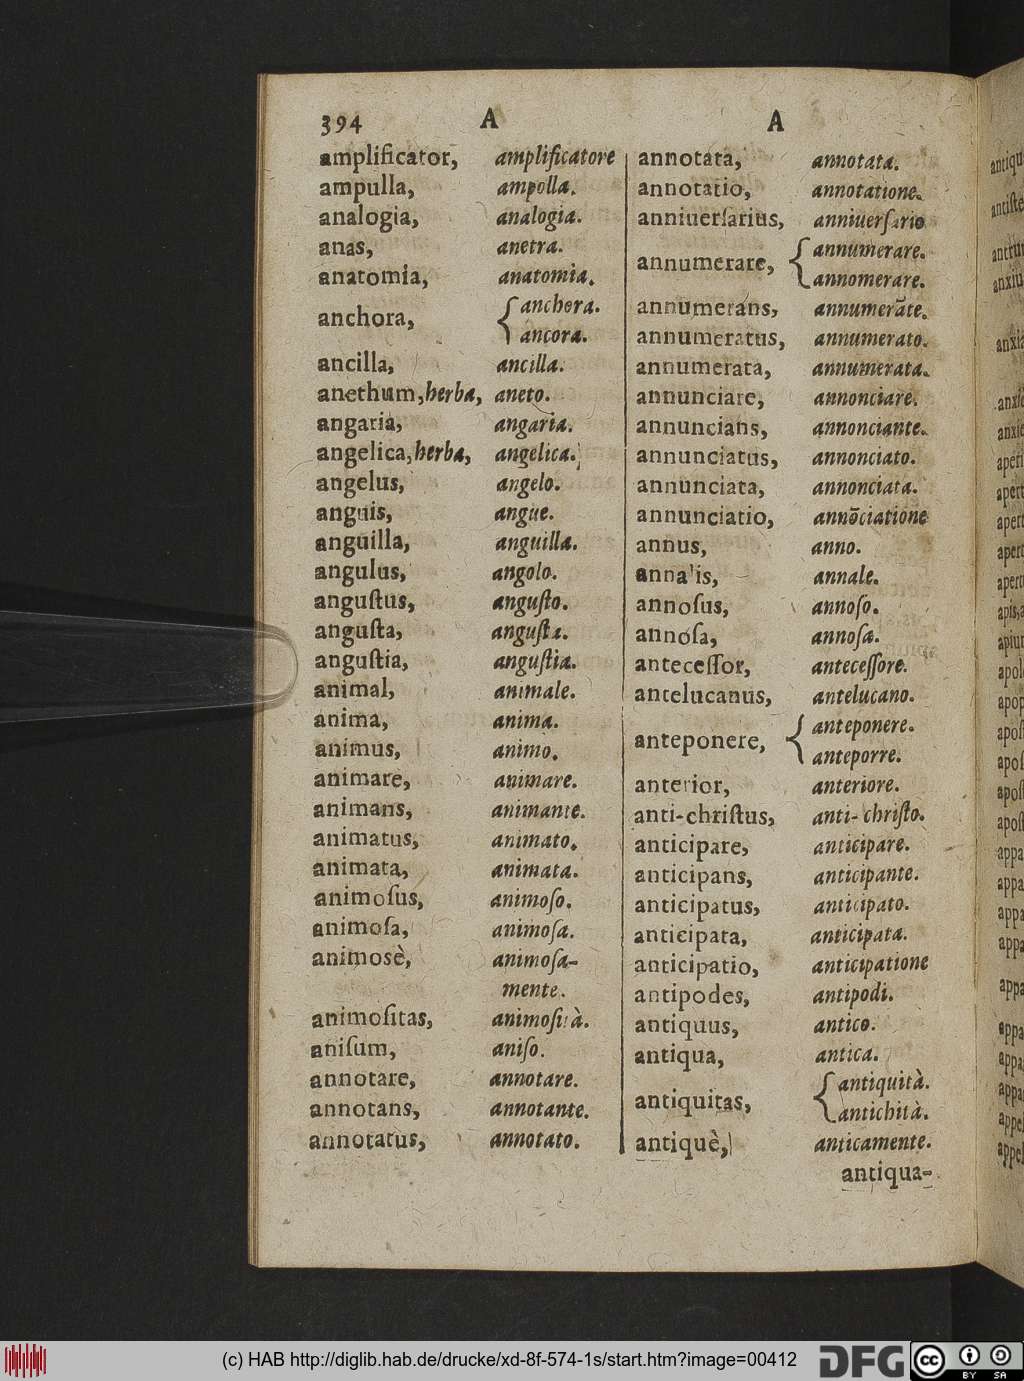 394 A A
amplificator, amplificatore
ampulla, ampolla.
analogia, analogia.
anas, anetra.
anatomia, anatomia.
anchora, { anchora.
ancora.
ancilla, ancilla.
anethum, herba, aneto.
angaria, angaria.
angelica, herba, angelica.
angelus, angelo.
anguis, angue.
anguilla, anguilla.
angulus, angolo.
anguſtus, anguſto.
anguſta, anguſta.
anguſtia, anguſtia.
animal, animale.
anima, anima.
animus, animo.
animare, animare.
animans, animante.
animatus, animato.
animata, animata.
animoſus, animoſo.
animoſa, animoſa.
animosè, animoſa-
mente.
animoſitas, animoſità.
aniſum, aniſo.
annotare, annotare.
annotans, annotante.
annotatus, annotato.
annotata, annotata.
annotatio, annotatione.
anniuerſarius, anniuerſario
annumerare, { annumerare.
annomerare.
annumerans, annumerãte.
annumeratus, annumerato.
annumerata, annumerata.
annunciare, annonciare.
annuncians, annonciante.
annunciatus, annonciato.
annunciata, annonciata.
annunciatio, annõciatione
annus, anno.
annalis, annale.
annoſus, annoſo.
annoſa, annoſa.
anteceſſor, anteceſſore.
antelucanus, antelucano.
anteponere, { anteponere.
anteporre.
anterior, anteriore.
anti-chriſtus, anti-chriſto.
anticipare, anticipare.
anticipans, anticipante.
anticipatus, anticipato.
anticipata, anticipata.
anticipatio, anticipatione
antipodes, antipodi.
antiquus, antico.
antiqua, antica.
antiquitas, { antiquità.
antichità.
antiquè, anticamente.
antiqua-
antiqu
antiſte
anxiu
anxia
anxie
anxie
aperi
apert
apert
apert
apert
apis, a
apiu
apol
apop
apoſ
apoſ
apoſt
apoſt
appa
appa
appa
appa
appa
appa
appa
appa
appe
appe
(c) HAB http://diglib.hab.de/drucke/xd-8f-574-1s/start.htm?image=00412
DFG
cc BY SA